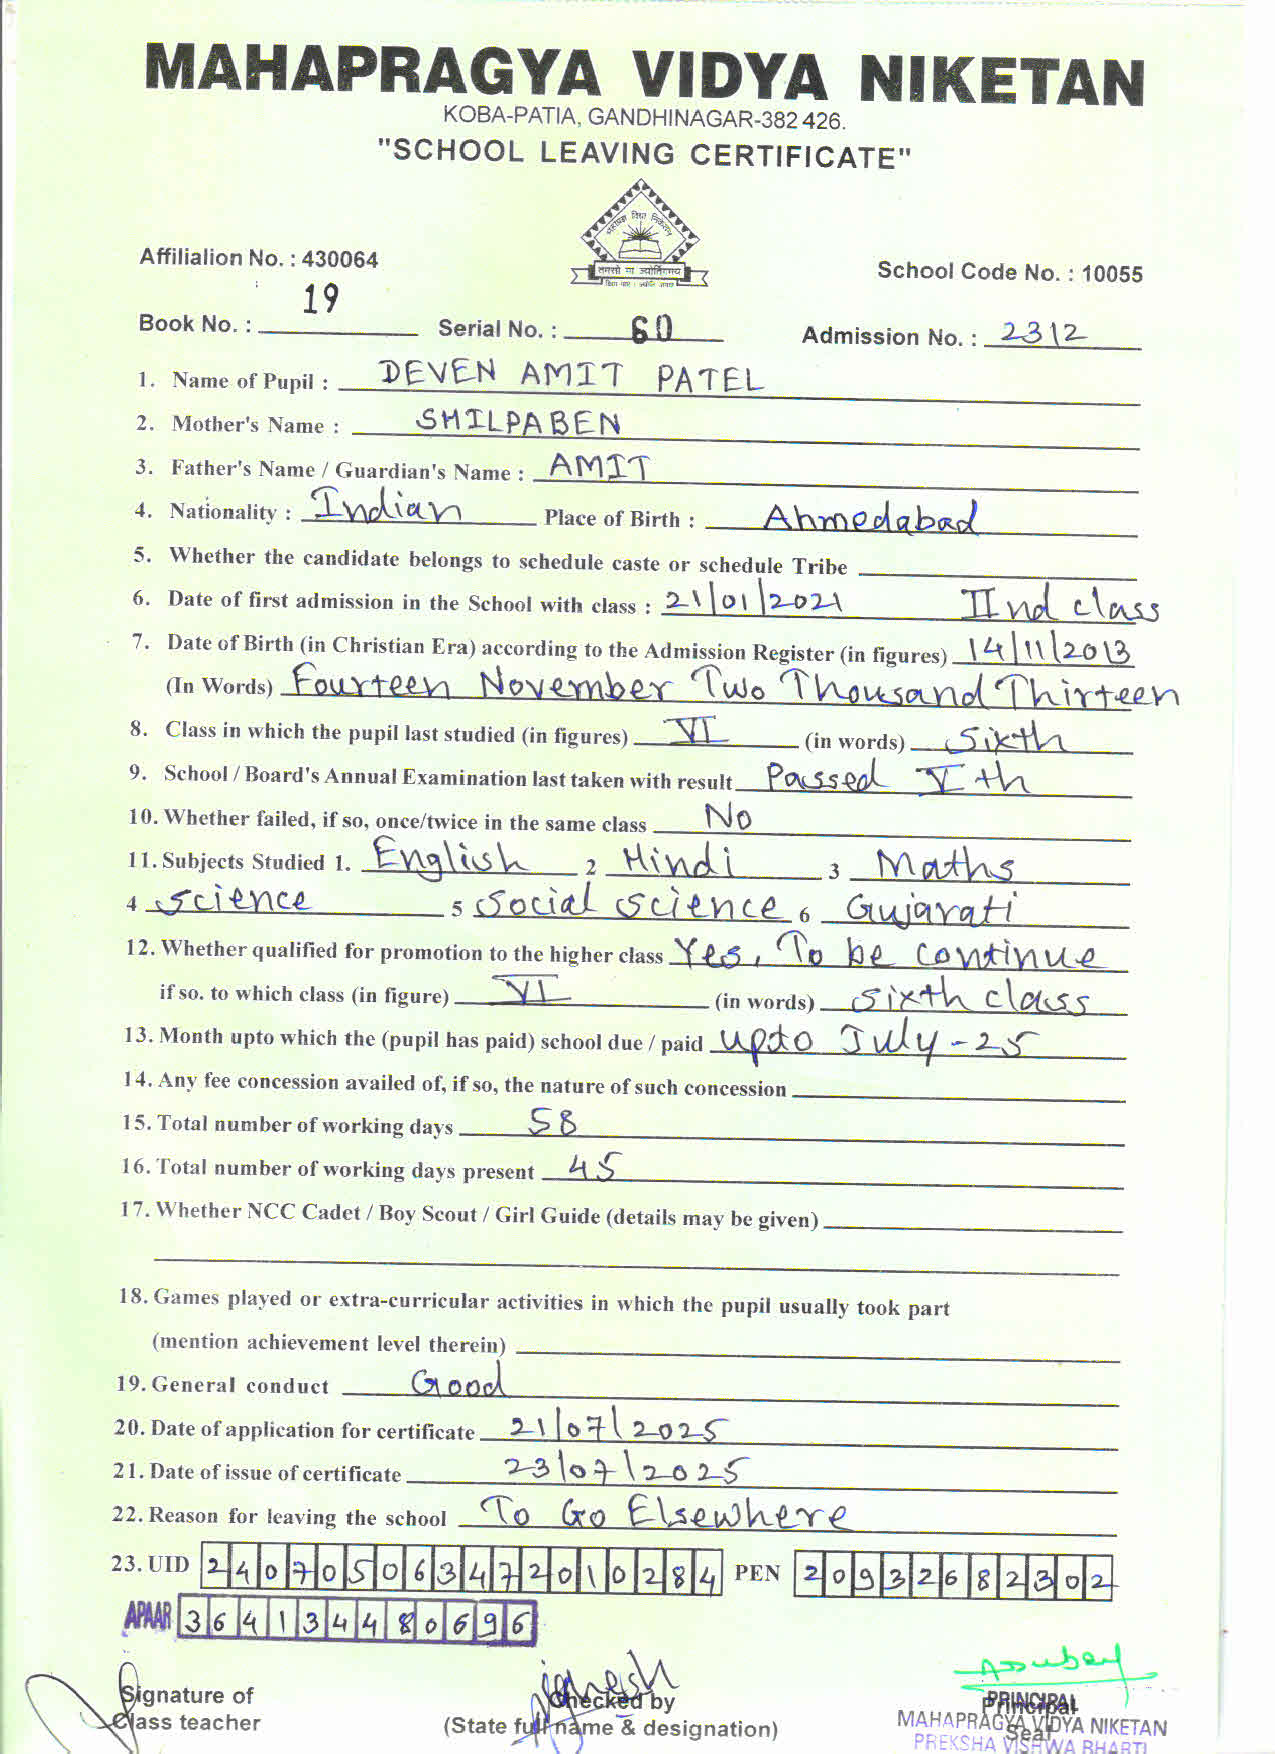 MAHAPRAGYA VIDYA NIKETAN
KOBA-PATIA, GANDHINAGAR-382 426.
"SCHOOL LEAVING CERTIFICATE"
महाप्रज्ञ विद्या निकेतन
तमसो मा ज्योतिर्गमय
Affilialion No. : 430064
School Code No. : 10055
Book No. : 19 Serial No. : 60 Admission No. : 2312
1. Name of Pupil : DEVEN AMIT PATEL
2. Mother's Name : SHILPABEN
3. Father's Name / Guardian's Name : AMIT
4. Nationality : Indian Place of Birth : Ahmedabad
5. Whether the candidate belongs to schedule caste or schedule Tribe
6. Date of first admission in the School with class : 21/01/2021 IInd class
7. Date of Birth (in Christian Era) according to the Admission Register (in figures) 14/11/2013
(In Words) Fourteen November Two Thousand Thirteen
8. Class in which the pupil last studied (in figures) VI (in words) Sixth
9. School / Board's Annual Examination last taken with result Passed Vth
10. Whether failed, if so, once/twice in the same class No
11. Subjects Studied 1. English 2 Hindi 3 Maths
4 Science 5 Social Science 6 Gujarati
12. Whether qualified for promotion to the higher class Yes, To be continue
if so. to which class (in figure) VI (in words) Sixth class
13. Month upto which the (pupil has paid) school due / paid upto July-25
14. Any fee concession availed of, if so, the nature of such concession
15. Total number of working days 58
16. Total number of working days present 45
17. Whether NCC Cadet / Boy Scout / Girl Guide (details may be given)
18. Games played or extra-curricular activities in which the pupil usually took part
(mention achievement level therein)
19. General conduct Good
20. Date of application for certificate 21/07/2025
21. Date of issue of certificate 23/07/2025
22. Reason for leaving the school To Go Elsewhere
23. UID 240705063472010284 PEN 20932682302
APAAR 364134480696
Signature of
Class teacher
Checked by
(State full name & designation)
PRINCIPAL
Principal
MAHAPRAGYA VIDYA NIKETAN
Seal
PREKSHA VISHWA BHARTI